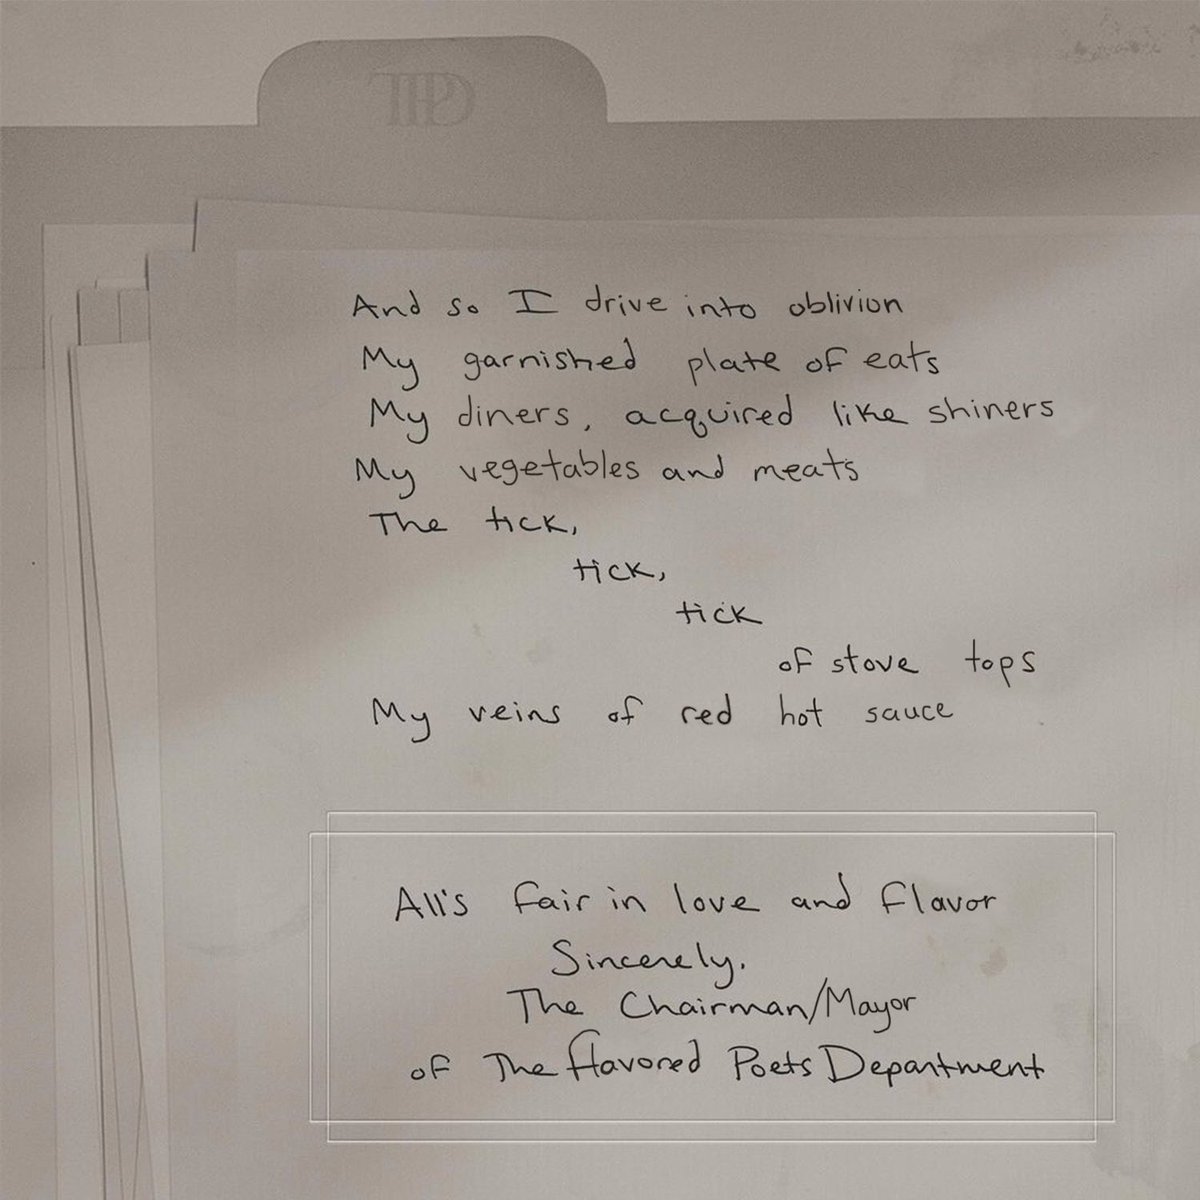 TTPD
And so I drive into oblivion
My garnished plate of eats
My diners, acquired like shiners
My vegetables and meats
The tick,
tick,
tick
of stove tops
My veins of red hot sauce
All's fair in love and flavor
Sincerely,
The Chairman/Mayor
of The flavored Poets Department